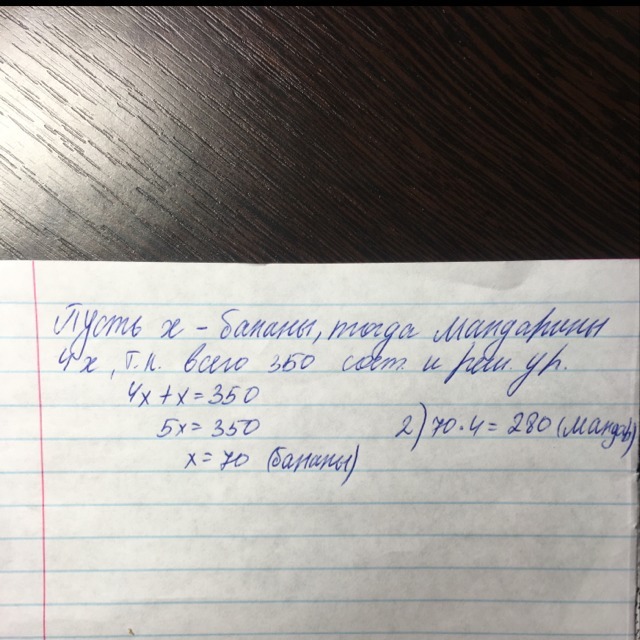 Пусть x - бананы, тогда мандарины
4x, т.к. всего 350 сост. и реш. ур.
4x+x=350
5x=350
x=70 (бананы)
2) 70·4=280 (манд)